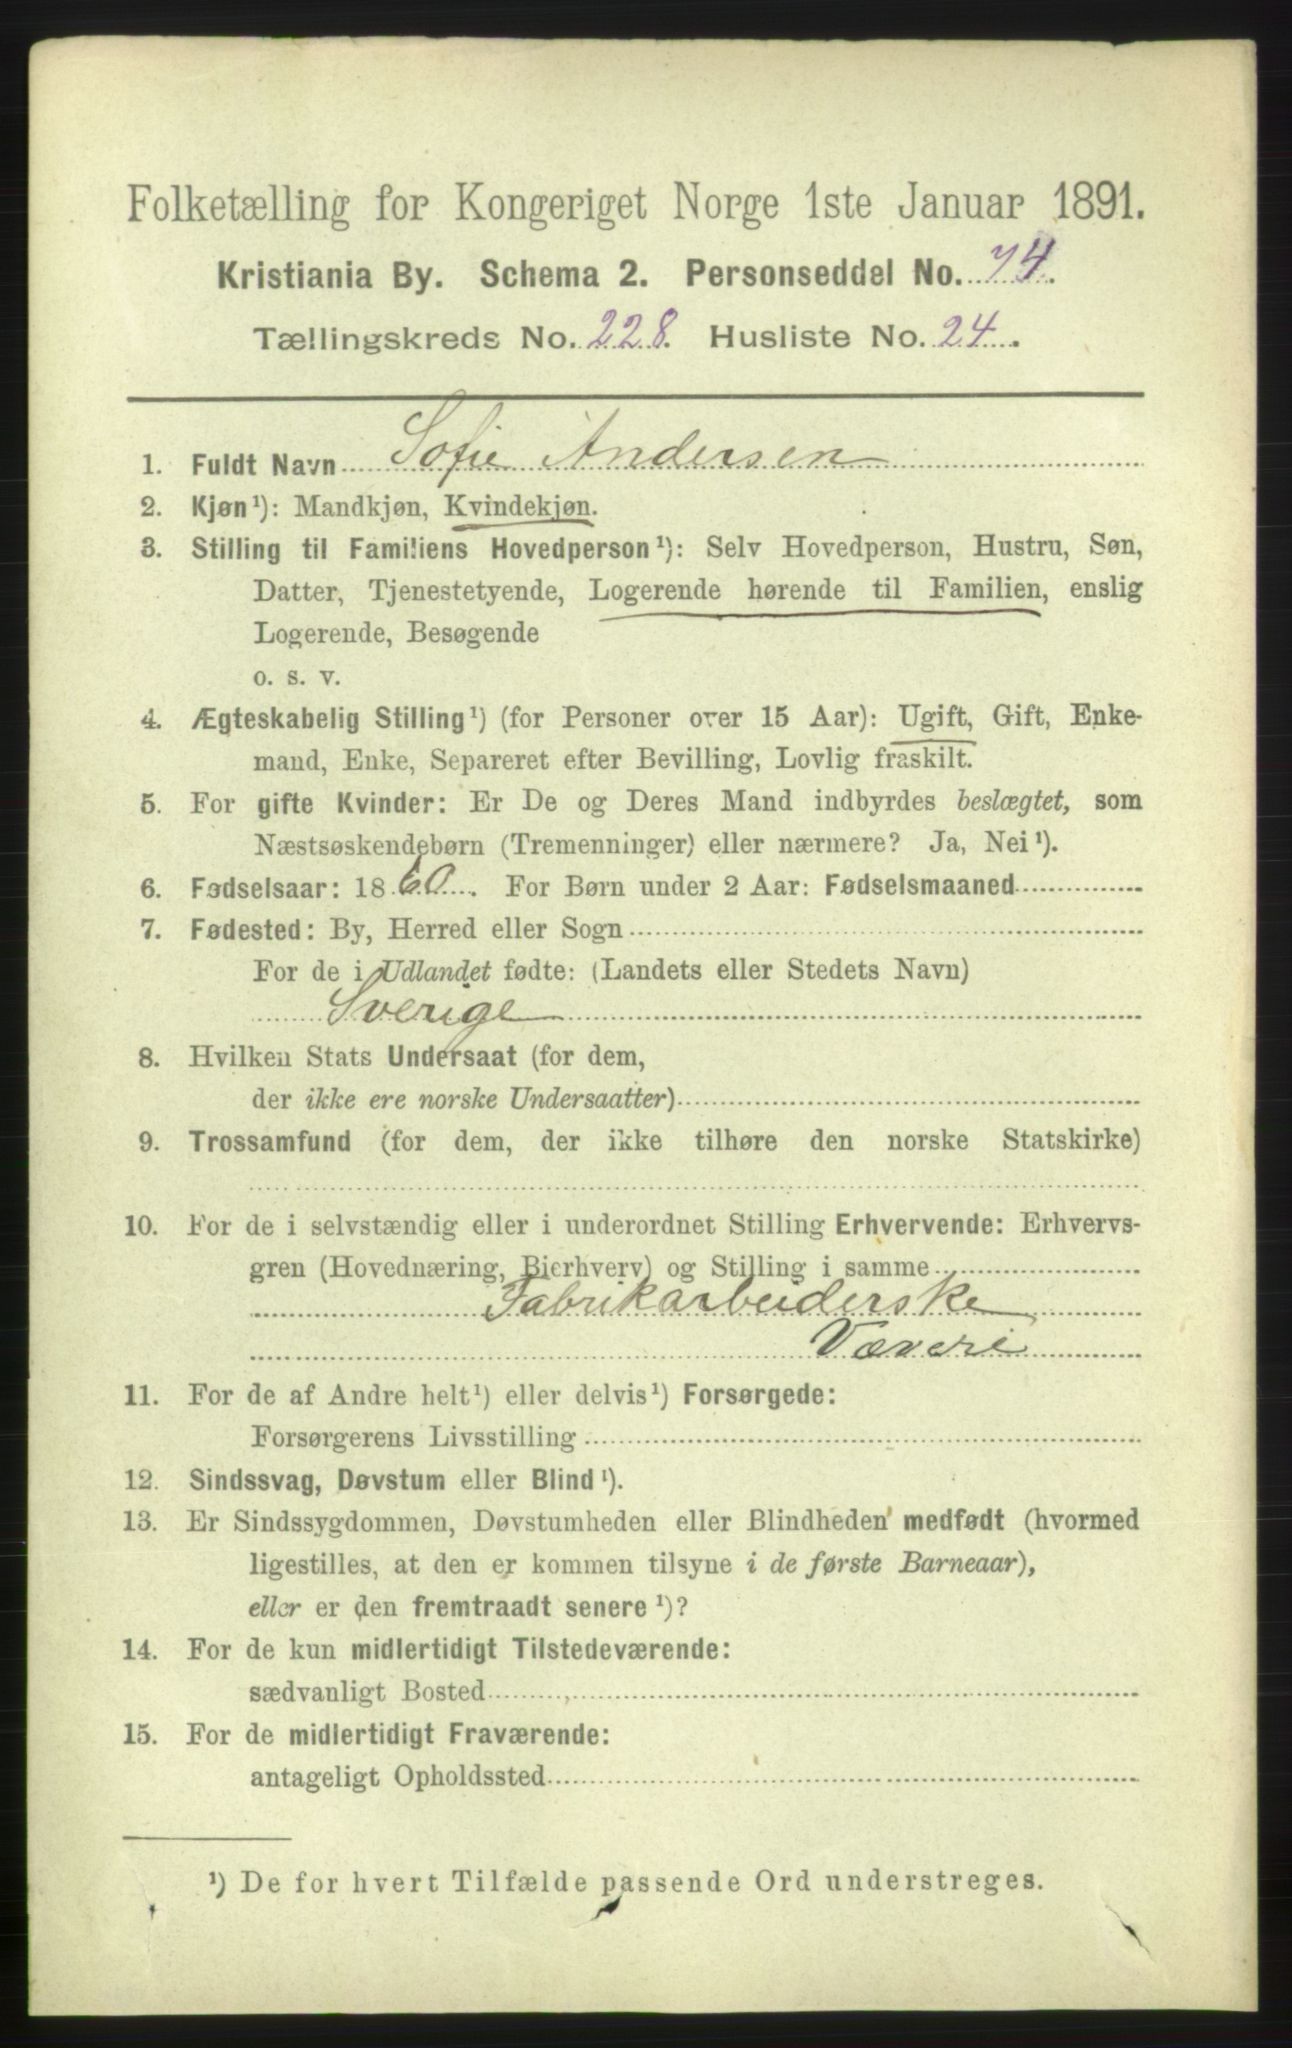 Folketælling for Kongeriget Norge 1ste Januar 1891.
Kristiania By. Schema 2. Personseddel No. 74.
Tællingskreds No. 228. Husliste No. 24.
1. Fuldt Navn Sofie Andersen
2. Kjøn¹): Mandkjøn, Kvindekjøn.
3. Stilling til Familiens Hovedperson¹): Selv Hovedperson, Hustru, Søn,
Datter, Tjenestetyende, Logerende hørende til Familien, enslig
Logerende, Besøgende
o. s. v.
4. Ægteskabelig Stilling¹) (for Personer over 15 Aar): Ugift, Gift, Enke-
mand, Enke, Separeret efter Bevilling, Lovlig fraskilt.
5. For gifte Kvinder: Er De og Deres Mand indbyrdes beslægtet, som
Næstsøskendebørn (Tremenninger) eller nærmere? Ja, Nei¹).
6. Fødselsaar: 1860. For Børn under 2 Aar: Fødselsmaaned
7. Fødested: By, Herred eller Sogn
For de i Udlandet fødte: (Landets eller Stedets Navn)
Sverige
8. Hvilken Stats Undersaat (for dem,
der ikke ere norske Undersaatter)
9. Trossamfund (for dem, der ikke tilhøre den norske Statskirke)
10. For de i selvstændig eller i underordnet Stilling Erhvervende: Erhvervs-
gren (Hovednæring, Bierhverv) og Stilling i samme
Fabrikarbeiderske
Væveri
11. For de af Andre helt¹) eller delvis¹) Forsørgede:
Forsørgerens Livsstilling
12. Sindssvag, Døvstum eller Blind¹).
13. Er Sindssygdommen, Døvstumheden eller Blindheden medfødt (hvormed
ligestilles, at den er kommen tilsyne i de første Barneaar),
eller er den fremtraadt senere¹)?
14. For de kun midlertidigt Tilstedeværende:
sædvanligt Bosted
15. For de midlertidigt Fraværende:
antageligt Opholdssted
¹) De for hvert Tilfælde passende Ord understreges.